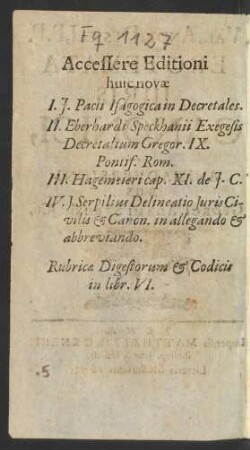 Fq 1127
Accessere Editioni
huic novæ
I. J. Pacii Isagogica in Decretales.
II. Eberhardi Speckhanii Exegesis
Decretalium Gregor. IX.
Pontif. Rom.
III. Hagemeieri cap. XI. de J. C.
IV. J. Serpilius Delineatio Juris Ci-
vilis & Canon. in allegando &
abbreviando.
Rubricæ Digestorum & Codicis
in libr. VI.
.5